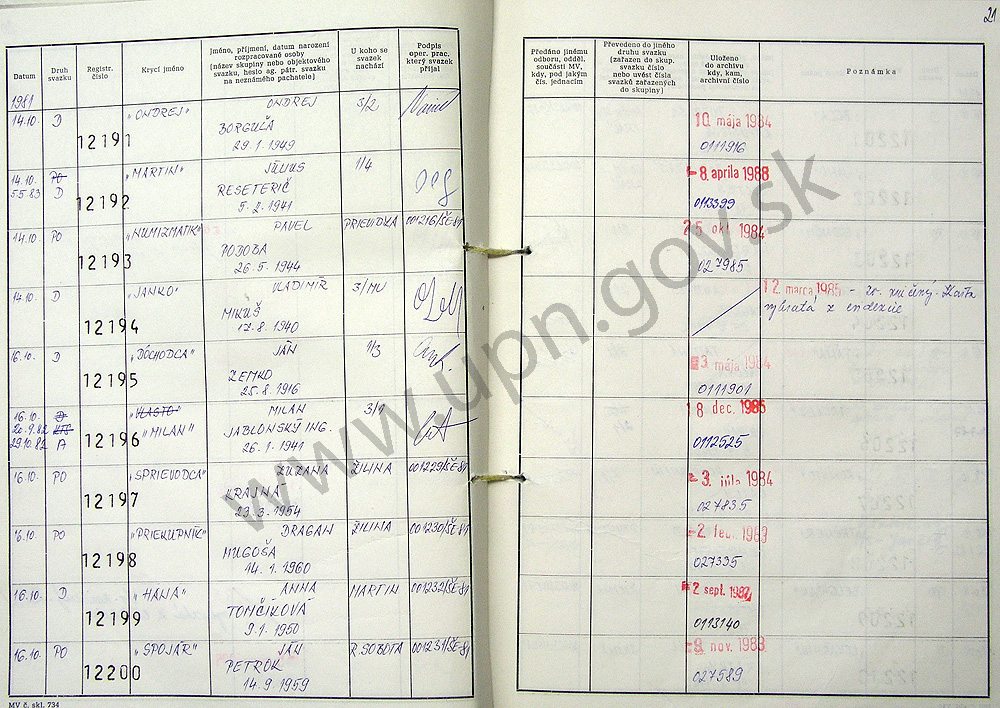 21
Datum
Druh svazku
Registr. číslo
Krycí jméno
Jméno, příjmení, datum narození
rozpracované osoby
(název skupiny nebo objektového
svazku, heslo ag. pátr. svazku
na neznámého pachatele)
U koho se
svazek
nachází
Podpis
oper. prac.
který svazek
přijal
Předáno jinému
odboru, odděl.
součásti MV,
kdy, pod jakým
čís. jednacím
Převedeno do jiného
druhu svazku
(zařazen do skup.
svazku číslo
nebo uvést čísla
svazků zařazených
do skupiny)
Uloženo
do archivu
kdy, kam,
archivní číslo
Poznámka
1981
14.10. D 12191 "ONDREJ" ONDREJ 3/2
BORGUĽA
29.1.1949
10. mája 1984
0111916
14.10. PO
5.5.83 D 12192 "MARTIN" JÚLIUS 1/4
RESETERIČ
5.2.1941
- 8. apríla 1988
0113399
14.10. PO 12193 "NUMIZMATIK" PAVEL PRIEVIDZA 001216/ŠE-81
POBOBA
26.5.1944
25. okt. 1984
027985
14.10. D 12194 "JANKO" VLADIMÍR 3/MU
MIKUŠ
17.8.1940
12. marca 1985 - zv. zničený. Karta
vybratá z indexu
16.10. D 12195 "DÔCHODCA" JÁN 1/3
ZEMKO
25.8.1916
3. mája 1984
0111901
16.10. D
20.9.82 KTS
29.10.82 A 12196 "VLASTO" MILAN 3/1
"MILAN" JABLONSKÝ ING.
26.1.1941
18. dec. 1985
0112525
16.10. PO 12197 "SPRIEVODCA" ZUZANA ŽILINA 001229/ŠE-81
KRAJNÁ
23.3.1954
- 3. júla 1984
027835
16.10. PO 12198 "PRIEKUPNÍK" DRAGAN ŽILINA 001230/ŠE-81
MUGOŠA
14.1.1960
- 2. feb. 1983
027335
16.10. D 12199 "HANA" ANNA MARTIN 001232/ŠE-81
TOMČÍKOVÁ
9.1.1950
- 2. sept. 1987
0113140
16.10. PO 12200 "SPOJÁR" JÁN R. SOBOTA 001231/ŠE-81
PETROK
14.9.1959
- 8. nov. 1983
027589
MV č. skl. 734
www.upn.gov.sk